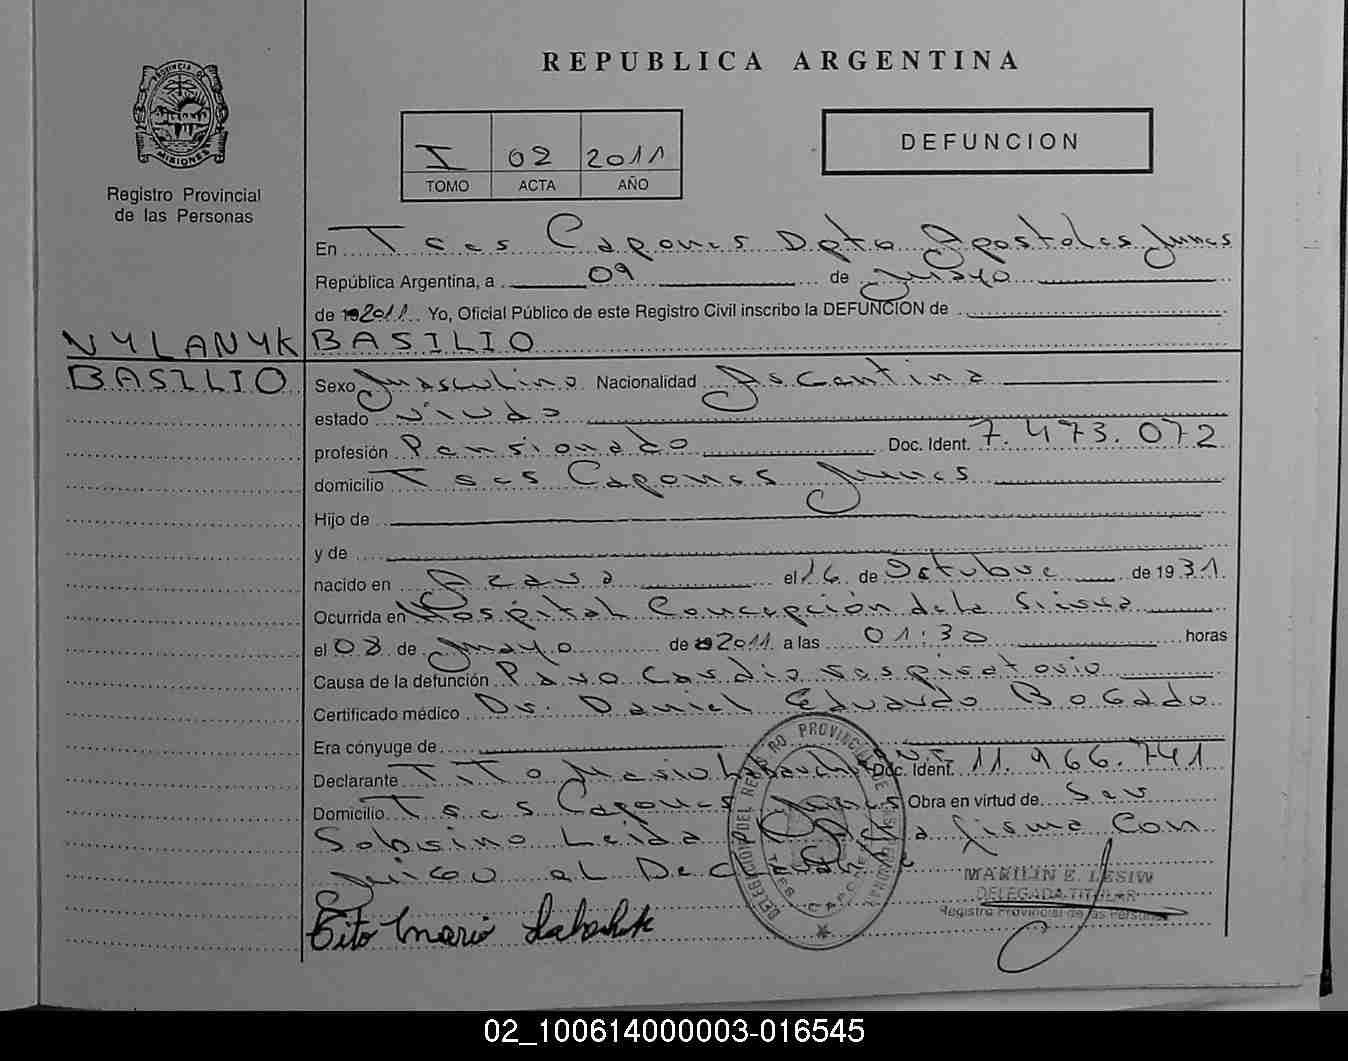 REPUBLICA ARGENTINA
PROVINCIA DE MISIONES
Registro Provincial
de las Personas
I 02 2011
TOMO ACTA AÑO
DEFUNCION
En Tres Capones Dpto Apostoles Mnes
República Argentina, a 09 de Mayo
de 19 2011 Yo, Oficial Público de este Registro Civil inscribo la DEFUNCION de
NYLANYK BASILIO
BASILIO
Sexo Masculino Nacionalidad Argentina
estado Viudo
profesión Pensionado Doc. Ident. 7.473.072
domicilio Tres Capones Mnes
Hijo de
y de
nacido en Azara el 16 de Octubre de 1931.
Ocurrida en Hospital Concepción de la Sierra
el 08 de Mayo de 2011 a las 01:30 horas
Causa de la defunción Paro Cardio respiratorio
Certificado médico Dr. Daniel Eduardo Bogado
Era cónyuge de
Declarante Tito Mario Doc. Ident. 11.966.741
Domicilio Tres Capones Mnes Obra en virtud de Ser
Sobrino Leida firma Con
migo el Declarante
Tito Mario
MARILIN E. LESIW
DELEGADA TITULAR
Registro Provincial de las Personas
DELEGACION DEL REGISTRO PROVINCIAL DE LAS PERSONAS
TRES CAPONES
02_100614000003-016545